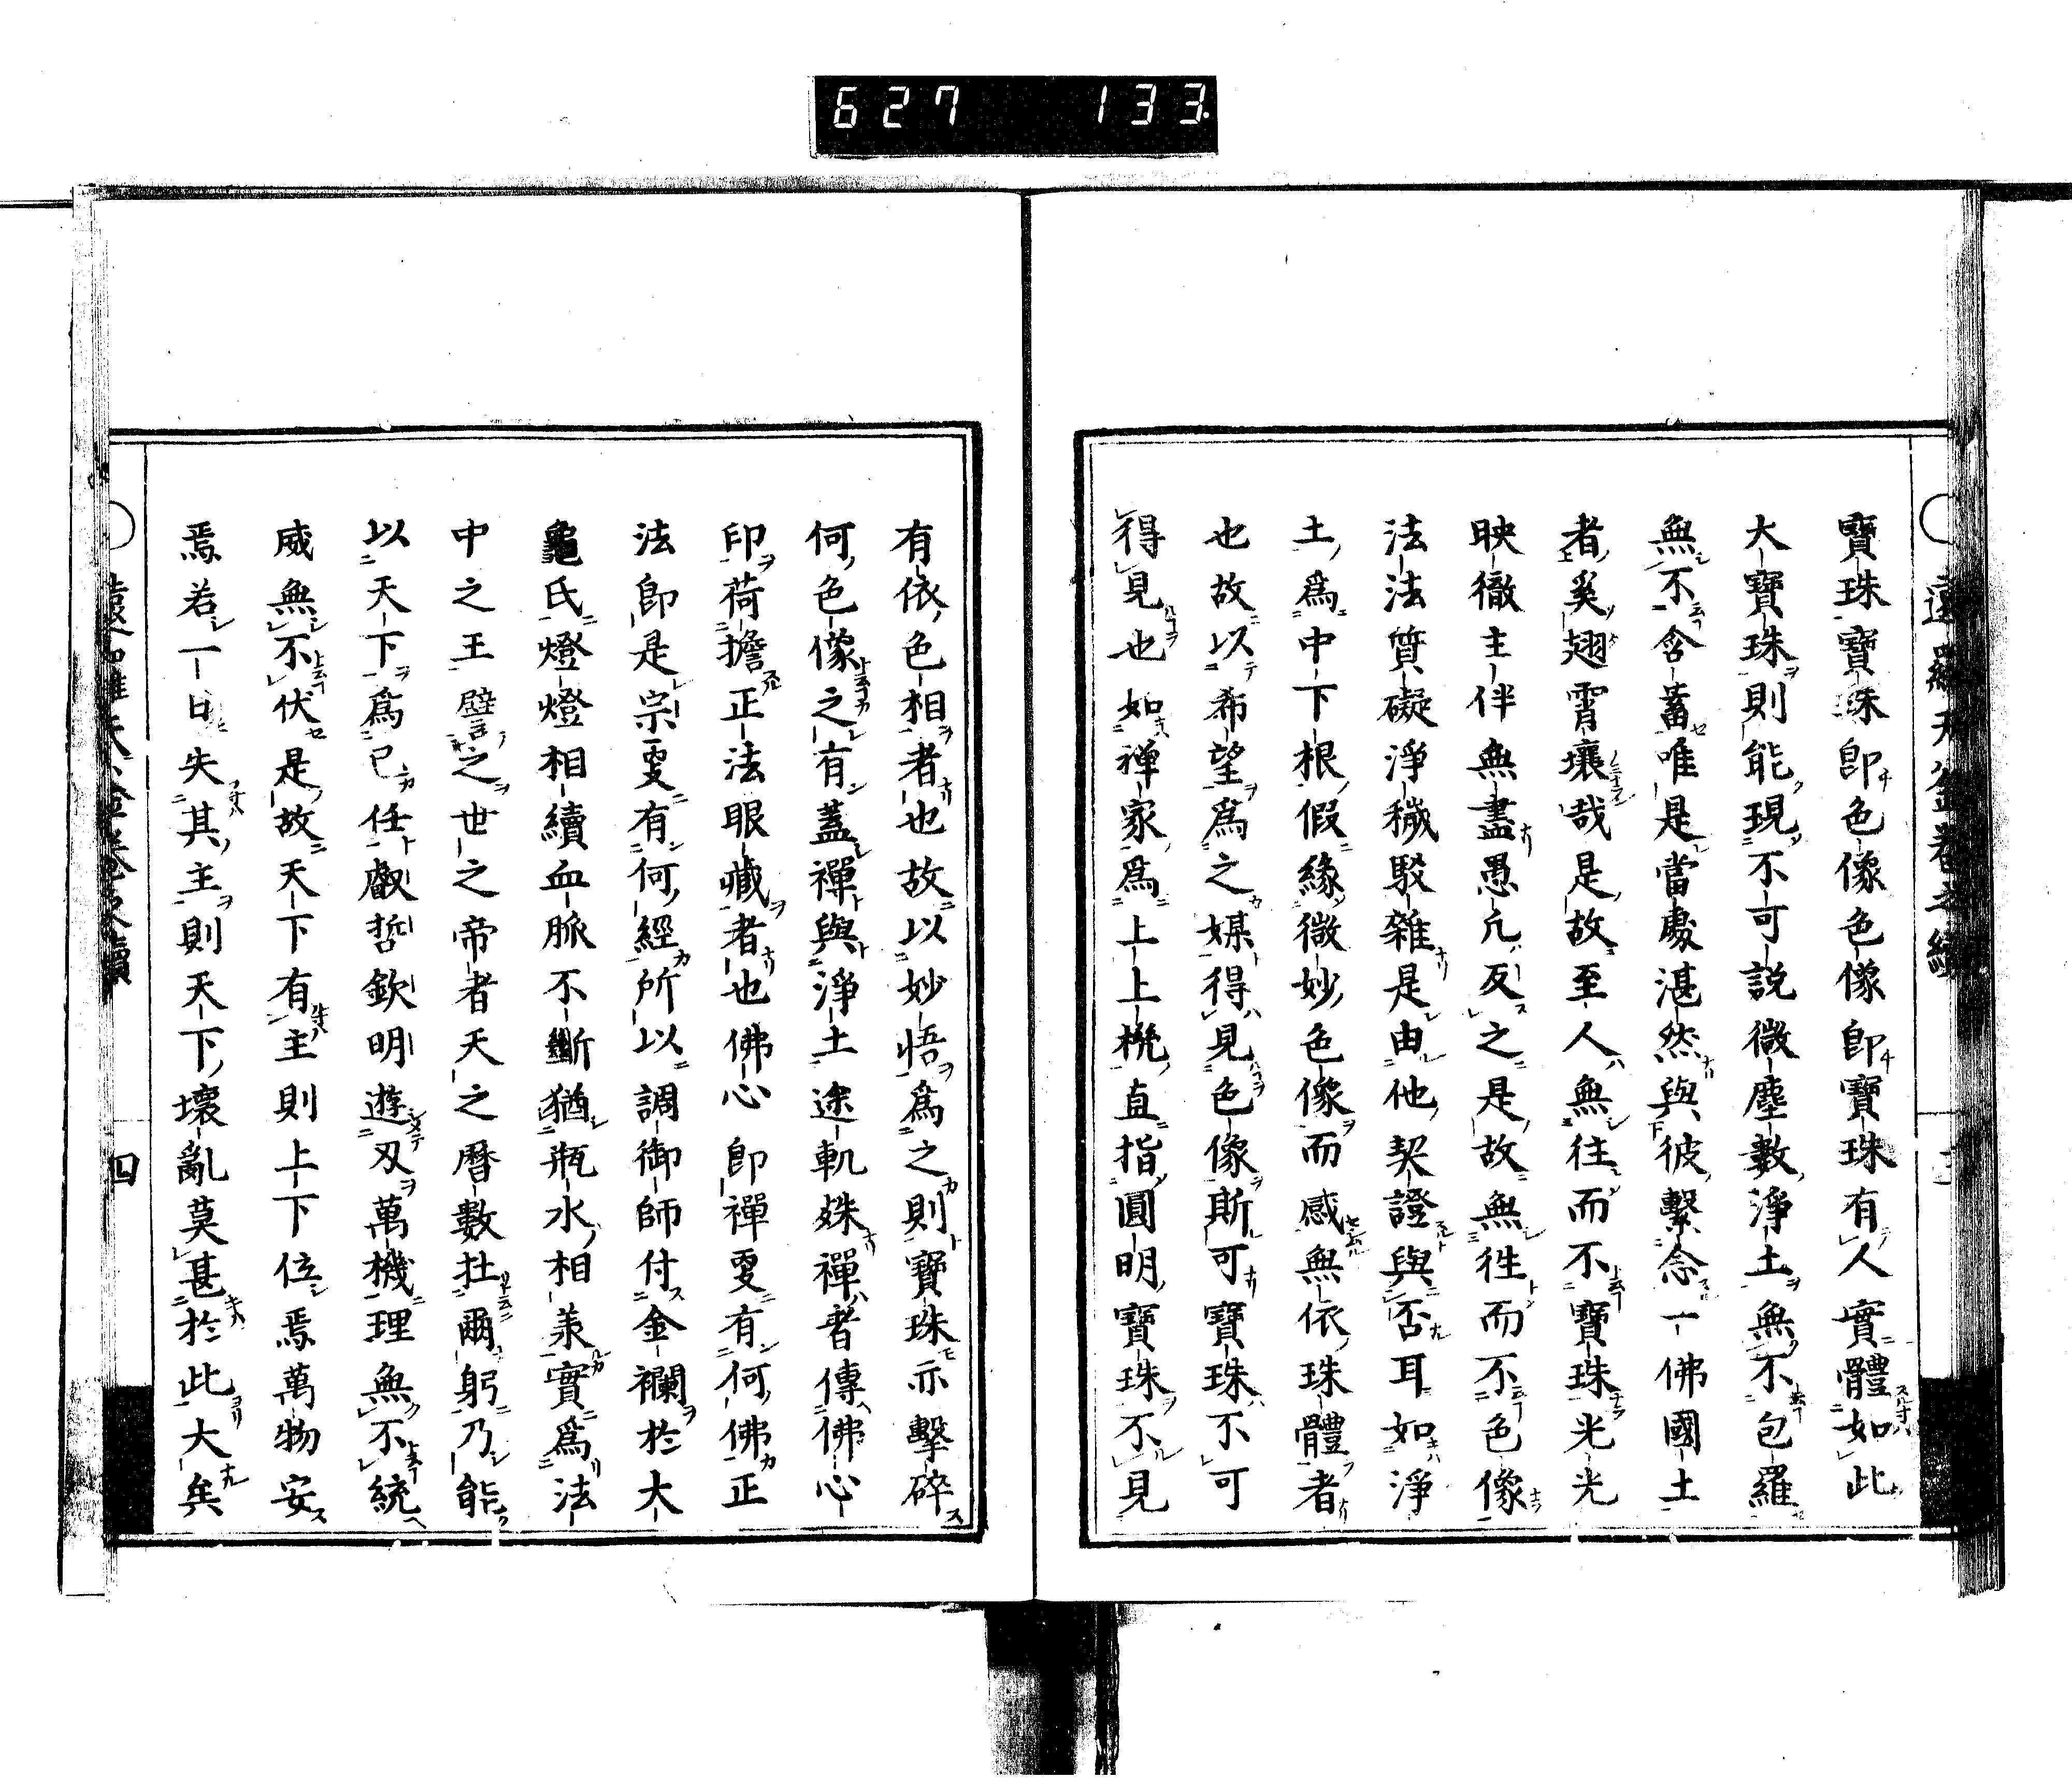 627 133
寶珠寶珠即色像色像即寶珠有人實體如此
大寶珠則能現不可說微塵數淨土無不包羅
無不含蓄唯是當處湛然與彼繫念一佛國土
者奚翅霄壤哉是故至人無往而不寶珠光光
映徹主伴無盡愚凢反之是故無徃而不色像
法法質礙淨穢駁雜是由他契證與否耳如淨
土為中下根假緣微妙色像而感無依珠體者
也故以希望為之媒得見色像斯可寶珠不可
得見也如禅家為上上機直指圓明寶珠不見
有依色相者也故以妙悟為之則寶珠示擊碎
何色像之有蓋禪與淨土途軌殊禪者傳佛心
印荷擔正法眼藏者也佛心即禪更有何佛正
法即是宗更有何經所以調御師付金襴於大
龜氏燈燈相續血脈不斷猶瓶水相承實為法
中之王譬之世之帝者天之曆數在爾躬乃能
以天下為己任叡哲欽明遊刃萬機理無不統
威無不伏是故天下有主則上下位焉萬物安
焉若一日失其主則天下壞亂莫甚於此大矣
四